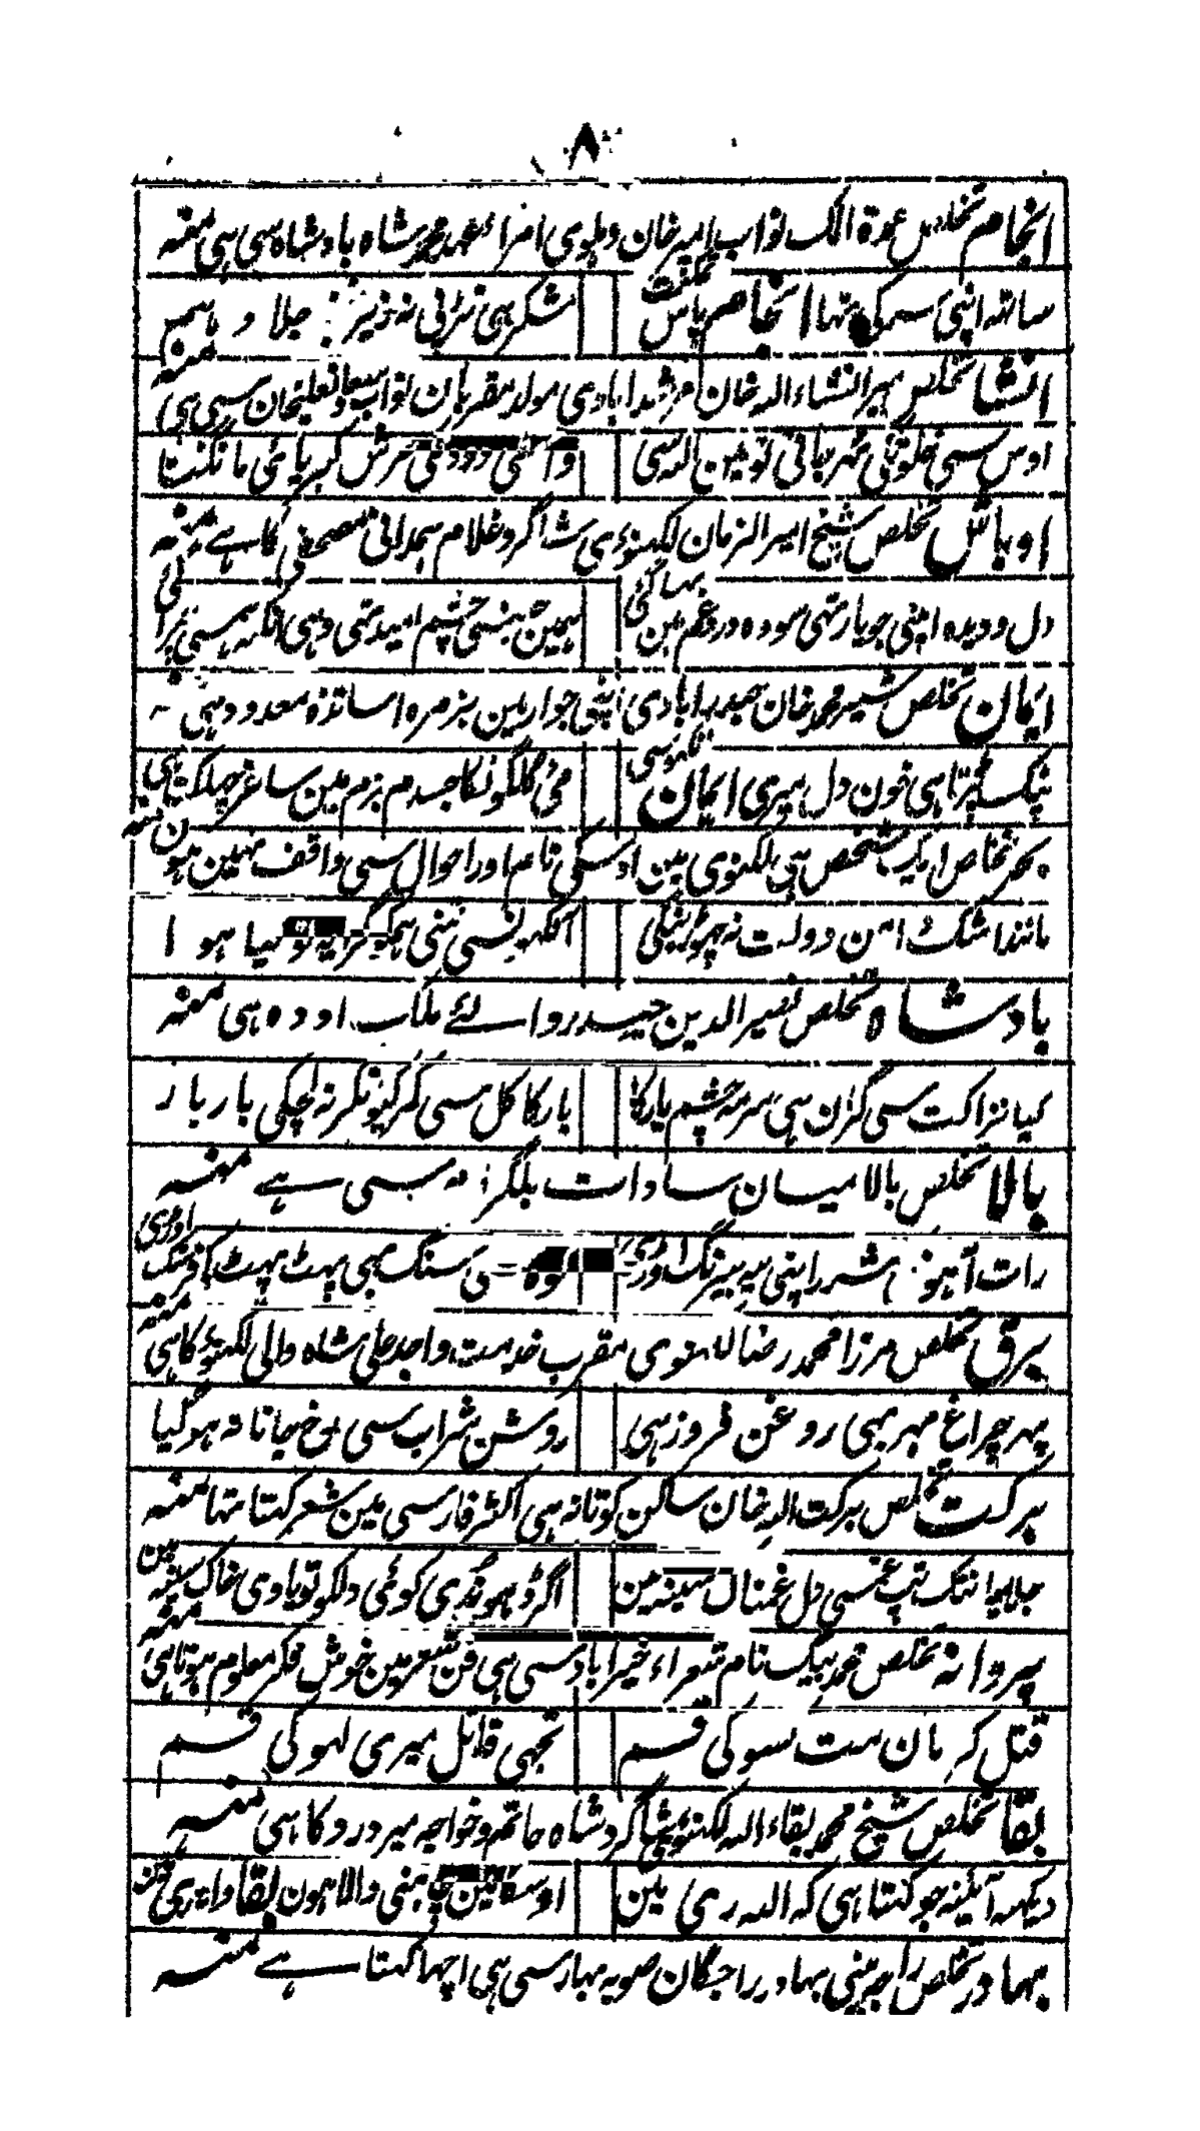 ۸
انجام تخلص عمدة الملک نواب امیر خان دہلوی امراء عہد محمد شاہ بادشاہ سی ہی منہ
ساتہ اپنی سمکی تہا انجام پاس تمکنت شکر ہی تڑپی نہ زیر جلاد ہمیں
انشا تخلص میر انشاء اللہ خان مرشدابادی مولد مقربان نواب سعادتعلیخان سی ہی منہ
اوس سی خلوتکی ٹہر جاتی تو مین اللہ سی کبریائی مانگتا
اوباش تخلص شیخ امیر الزمان لکہنوی ہی شاگرد غلام ہمدانی مصحفی کا ہے منہ
دل و دیدہ اپنی جو یار تہی سو وہ درد غم مین بہا گئی ہمین جنسی چشم امید تہی وہی انکہہ ہمسی چرا گئی
ایمان تخلص شیر محمد خان حیدرابادی اپنی جوار مین بزمرہ اساتذہ معدود ہی منہ
ٹپک پڑتا ہی خون دل میری ایمان انکہونسی مئی گلگونکا جسدم بزم مین ساغر چہلکتا ہی
بحر تخلص ایک شخص ہی لکہنوی مین اوسکی نام اور احوال سی واقف نہین ہون منہ
مانند اشک امن دولت نہ چہوڑینگی انکہونسی ہمکو گریہ تو کیا ہوا
بادشاہ تخلص نصیر الدین حیدر والئے ملک اودہ ہی منہ
کیا نزاکت سی گران ہی سرمہ چشم یارکا بارکاکل سی کمر کیونکر نہ لچکی بار بار
بالا تخلص بالا میان سادات بلگرامہ سی ہے منہ
رات آہونی شرر اپنی سنگ بہی پہٹ پہٹ کی
برق تخلص مرزا محمد رضا لکہنوی مقرب خدمت واجد علی شاہ والی لکہنؤ کا ہی منہ
پہر چراغ مہر بہی روغن فروز ہی روشن شراب سی رخ جانانہ ہو گیا
برکت تخلص برکت اللہ خان ساکن کوتانہ ہی اکثر فارسی مین شعر کہتا تہا منہ
جلا ہی اتنک تپ غمسی دل غمناک سینہ مین اگر ڈہونڈی کوئی دلکو تو پاوی خاک سینہ مین
پروانہ تخلص محمد بیگ نام شعراء خیراباد سی ہی فن شعر مین خوش فکر معلوم ہوتا ہی منہ
قتل کر مان مت سبو کی قسم تجہی قاتل میری لہو کی قسم
بقا تخلص شیخ محمد بقاء اللہ لکہنوی شاگرد شاہ حاتم و خواجہ میر درد کا ہی منہ
دیکہہ آئینہ جو کہتا ہی کہ اللہ ری مین اوسکا مین چاہنی والا ہون بقا واہ ری مین
بہادر تخلص راجہ بینی بہادر راجگان صوبہ بہار سی ہی اچہا کہتا ہے منہ